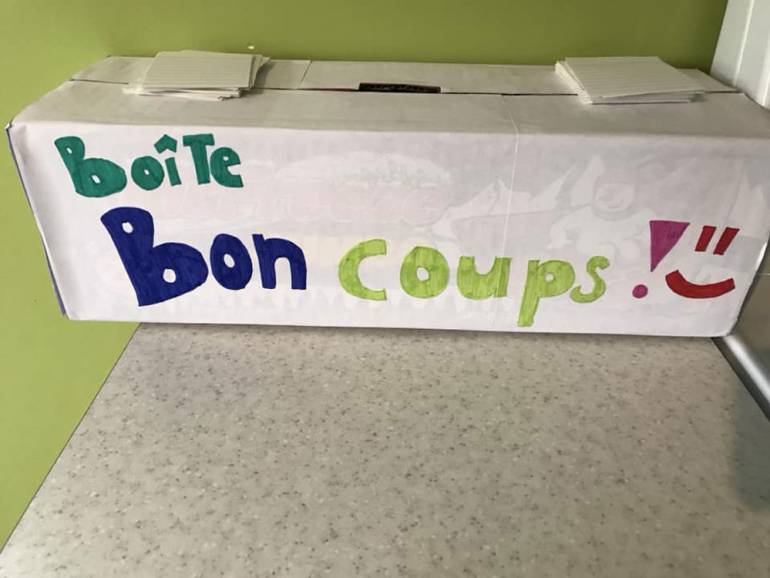 Boîte
Bon coups!